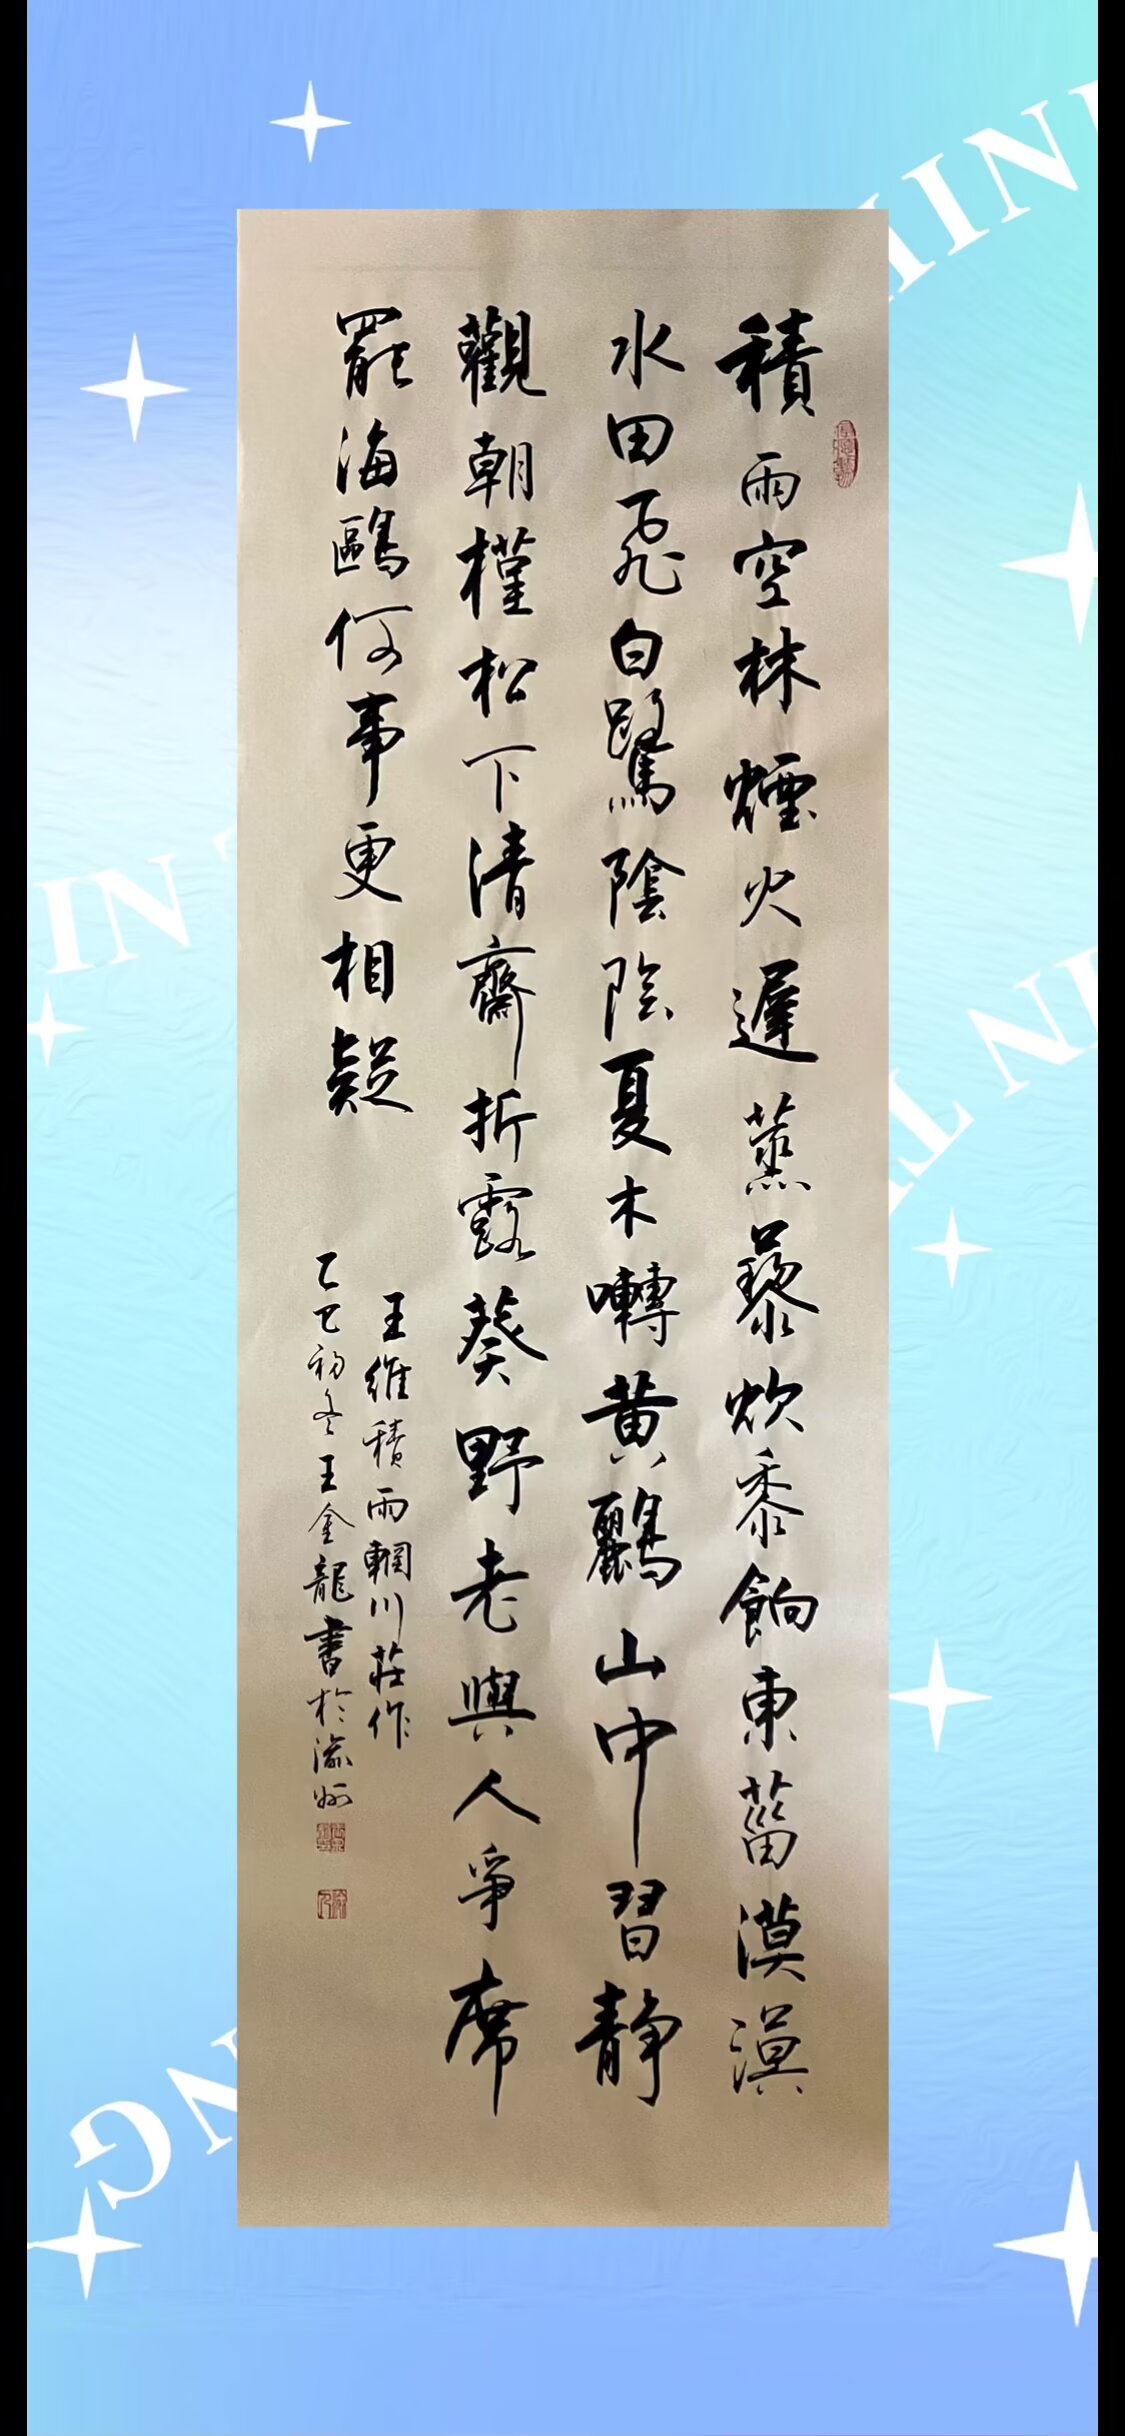 積雨空林煙火遲蒸藜炊黍餉東菑漠漠
水田飛白鷺陰陰夏木囀黄鸝山中習静
觀朝槿松下清齋折露葵野老與人爭席
罷海鷗何事更相疑
王維積雨輞川莊作
乙巳初冬王金龍書於渝州